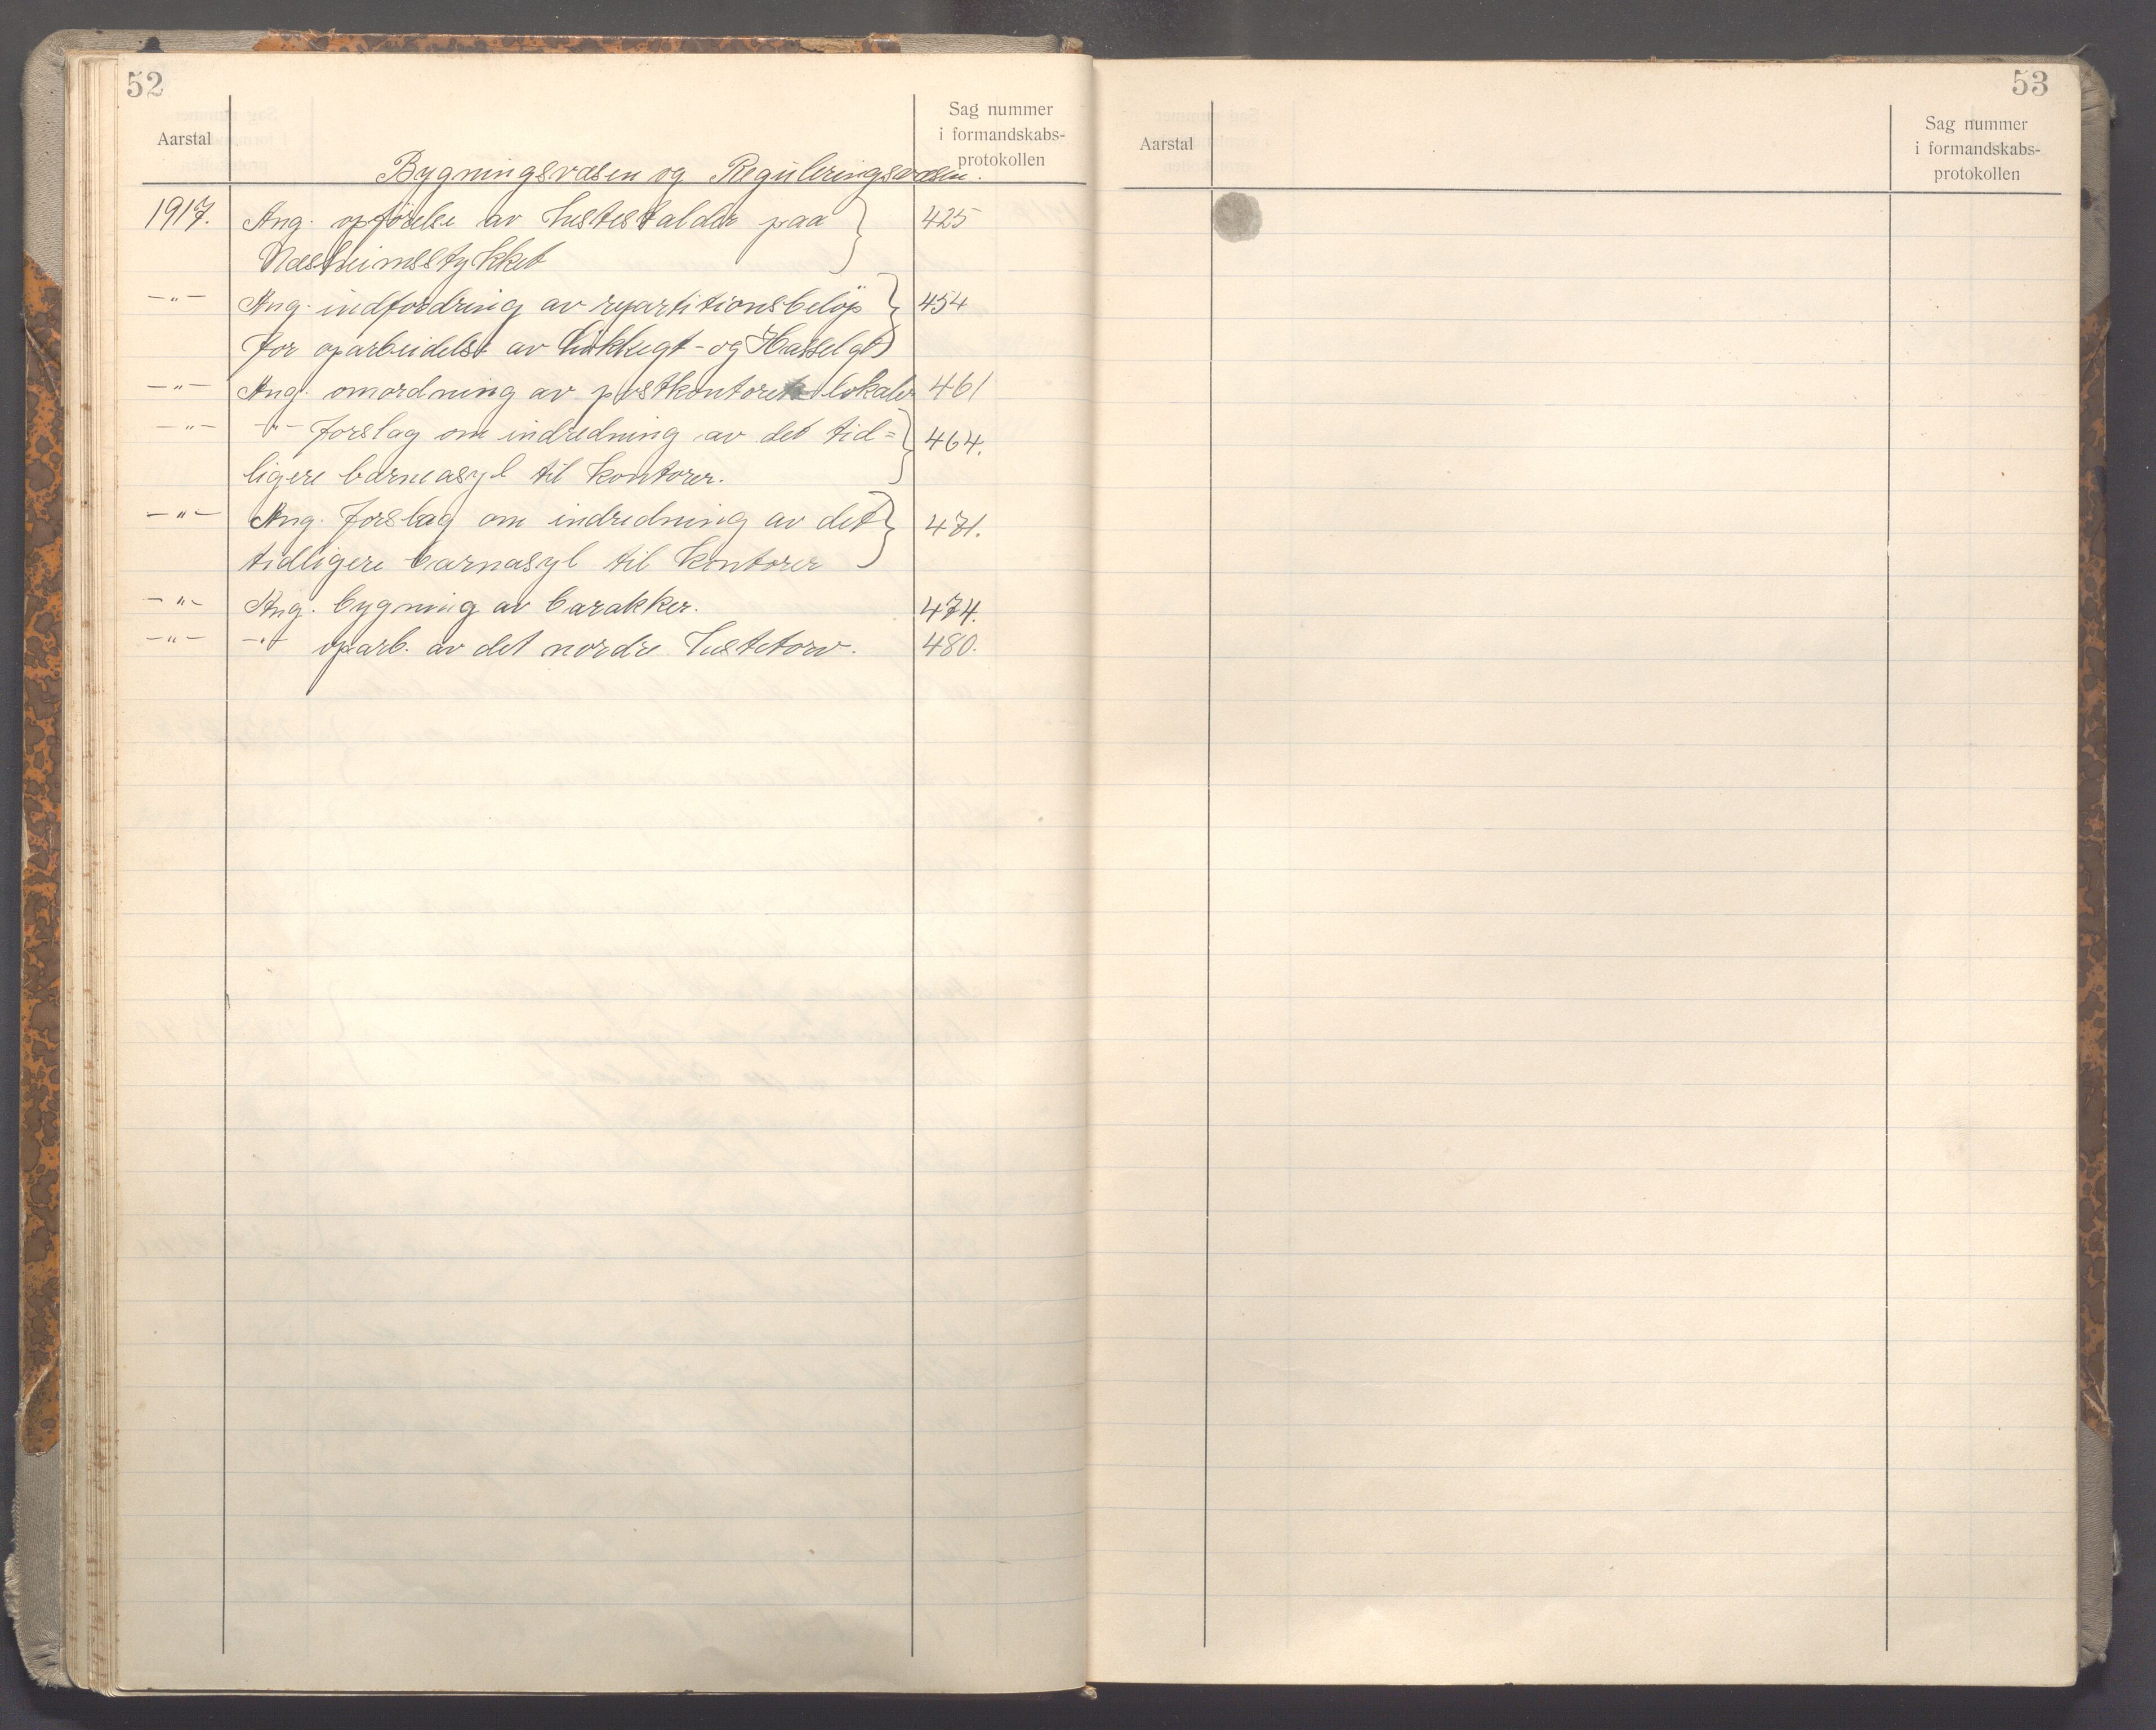 52
Aarstal
Sag nummer
i formandskabs-
protokollen
Bygningsvæsen og Reguleringsvæsen.
1917. Ang. opförelse av hestestalder paa 425
Næsheimsstykket
-"- Ang. indfordring av repartitionsbelöp 454
for oparbeidelse av - og Hasselgt
-"- Ang. omordning av postkontorets lokaler 461
-"- -"- Forslag om indredning av det tid= 464.
ligere barneasyl til kontorer.
-"- Ang. Forslag om indredning av det 471.
tidligere barnasyl til kontorer
-"- Ang. bygning av barakker. 474.
-"- -"- oparb. av det nordre hestetorv. 480.
53
Aarstal
Sag nummer
i formandskabs-
protokollen